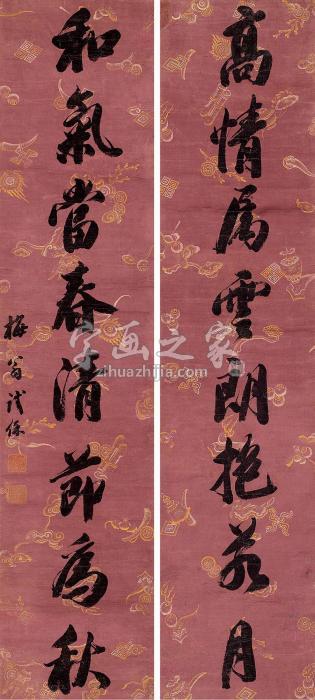 高情属雲朗抱若月
和氣當春清節為秋
梅翁鐵保
字画之家
zihuazhijia.com